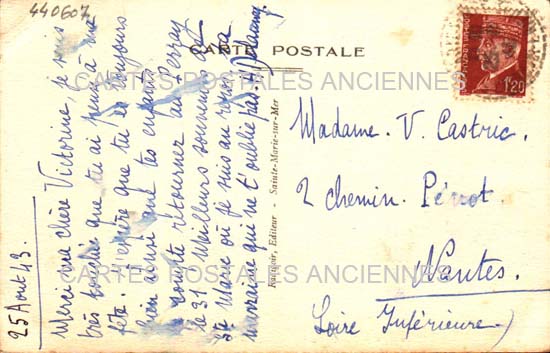 440607
CARTE POSTALE
CARTES POSTALES ANCIENNES
CARTES POSTALES ANCIENNES
POSTES FRANÇAISES
1F20
Editeur - Sainte-Marie-sur-Mer
25 Aout 43.
Merci ma chère Victorine, je suis
très touchée que tu ai pensé à ma
fête. J'espère que tu es toujours
bien ainsi que tes enfants
je compte retourner au
le 31 Meilleurs souvenirs de
Ste Marie où je suis au repos
marraine qui ne t'oublie pas
Madame. V. Castric.
2 chemin. Perrot.
Nantes.
(Loire Inférieure)